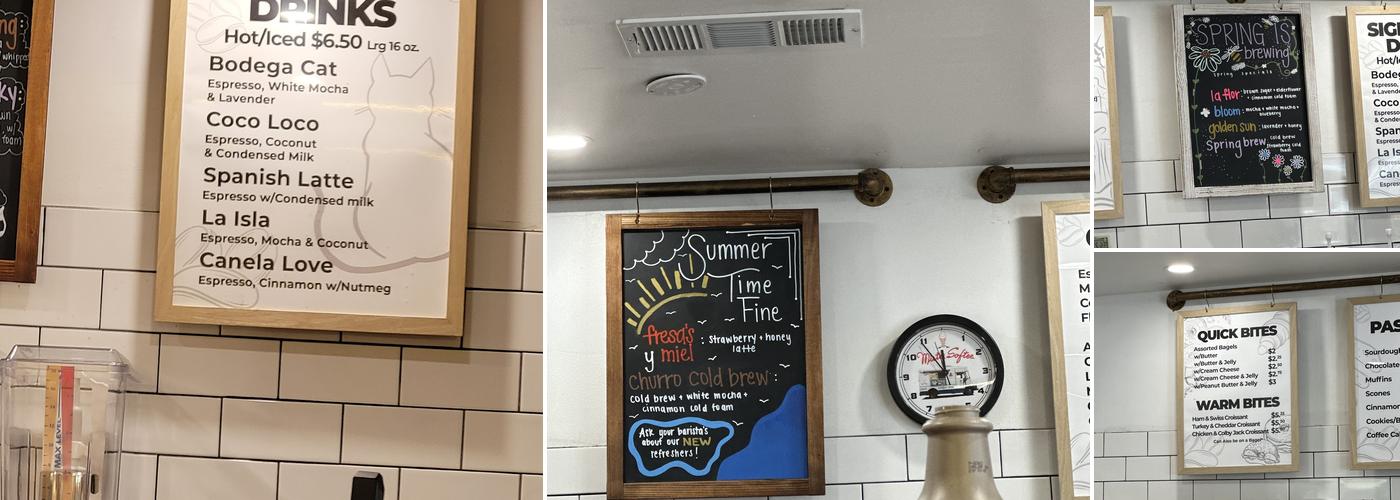 DRINKS
Hot/Iced $6.50 Lrg 16 oz.
Bodega Cat
Espresso, White Mocha
& Lavender
Coco Loco
Espresso, Coconut
& Condensed Milk
Spanish Latte
Espresso w/Condensed milk
La Isla
Espresso, Mocha & Coconut
Canela Love
Espresso, Cinnamon w/Nutmeg
MAX LEVEL
Summer
Time
Fine
fresa's
y miel : strawberry + honey
latte
churro cold brew :
cold brew + white mocha +
cinnamon cold foam
Ask your barista's
about our NEW
refreshers!
Mister Softee
SPRING IS
brewing
spring specials
la flor : brown sugar + elderflower
+ cinnamon cold foam
bloom : mocha + white mocha +
blueberry
golden sun : lavender + honey
spring brew : cold brew
strawberry cold
foam
QUICK BITES
Assorted Bagels
w/Butter $2
w/Butter & Jelly $2.25
w/Cream Cheese $2.50
w/Cream Cheese & Jelly $2.75
w/Peanut Butter & Jelly $3
WARM BITES
Ham & Swiss Croissant
Turkey & Cheddar Croissant
Chicken & Colby Jack Croissant
Can Also be on a Bagel
Muffins
Scones